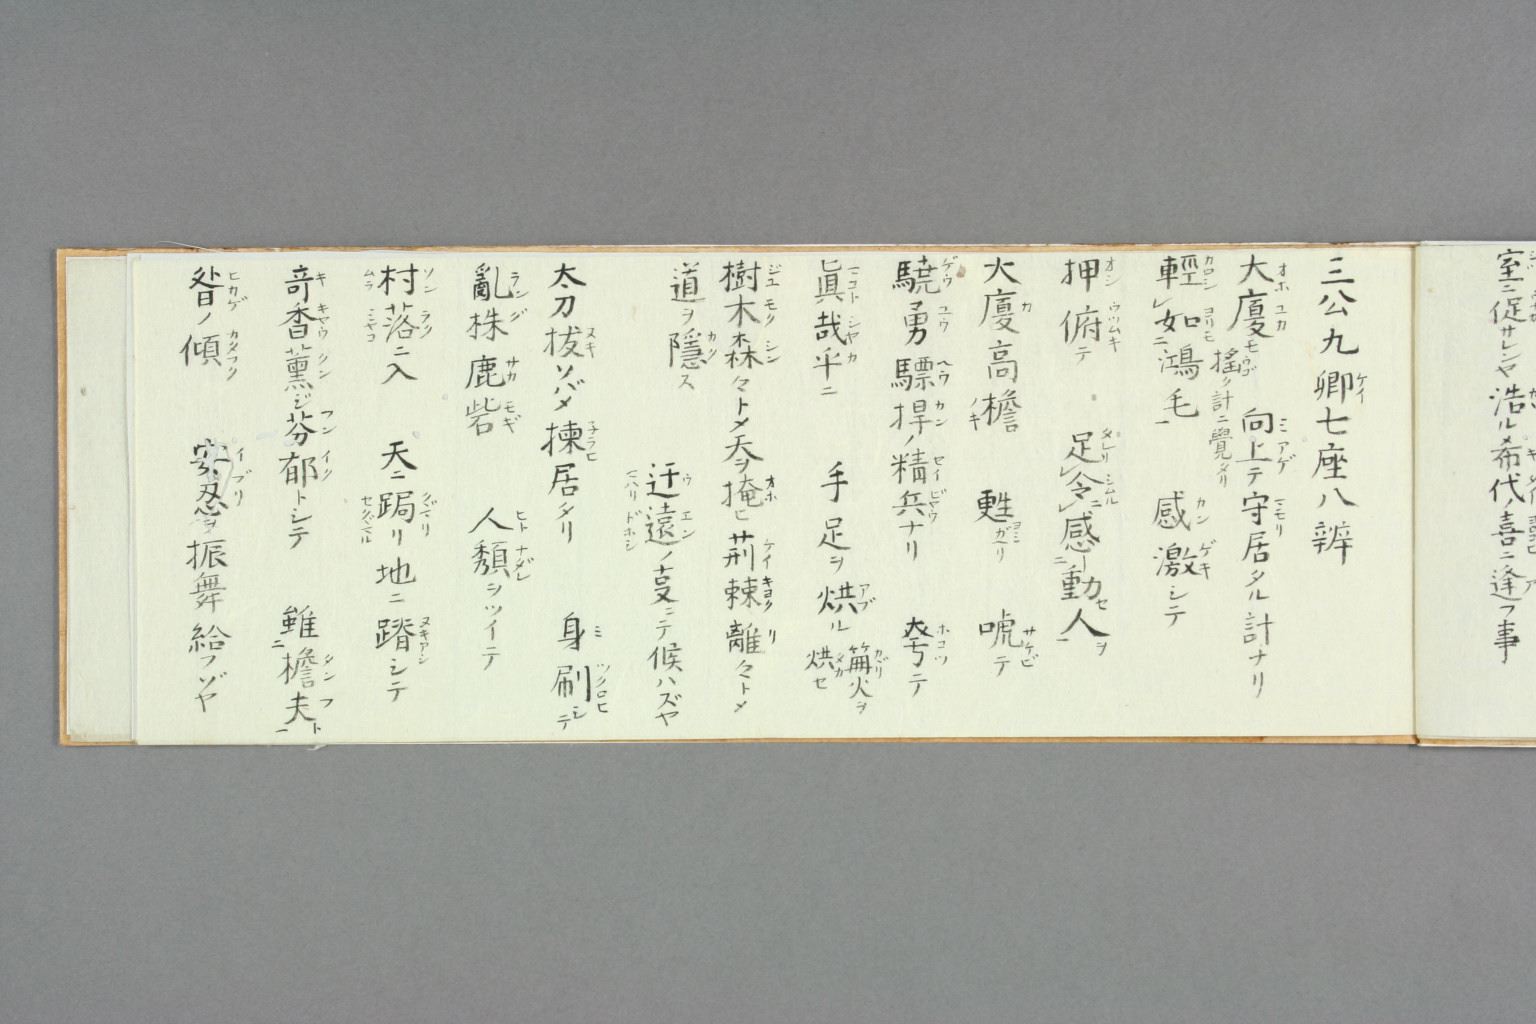 室ニ促サレンヤ 浩ルメ希代ノ喜ニ逢フ事
三公九卿七座八辨
大廈モ搖ク計ニ覺タリ 向上テ守居タル計ナリ
輕レ如ニ鴻毛一 感激シテ
押俯テ 足レ令ニ感ニ動人一ヲ
大廈高檐 甦リ 唬テ
驍勇驃捍ノ精兵ナリ 夸テ
眞哉乎ニ 手足ヲ烘ル 篝火ヲ烘セ
樹木森々トメ天ヲ掩ヒ荊棘離々トメ
道ヲ隱ス 迂遠ノ㕝ニテ候ハズヤ
太刀拔ソバメ揀居タリ 身刷シテ
亂株鹿砦 人頽ヲツイテ
村落ニ入 天ニ跼リ地ニ蹐シテ
竒香薫ジ芬郁トシテ 雖ニ檐夫一ト
晷ノ傾 忍ヲ振舞給フゾヤ